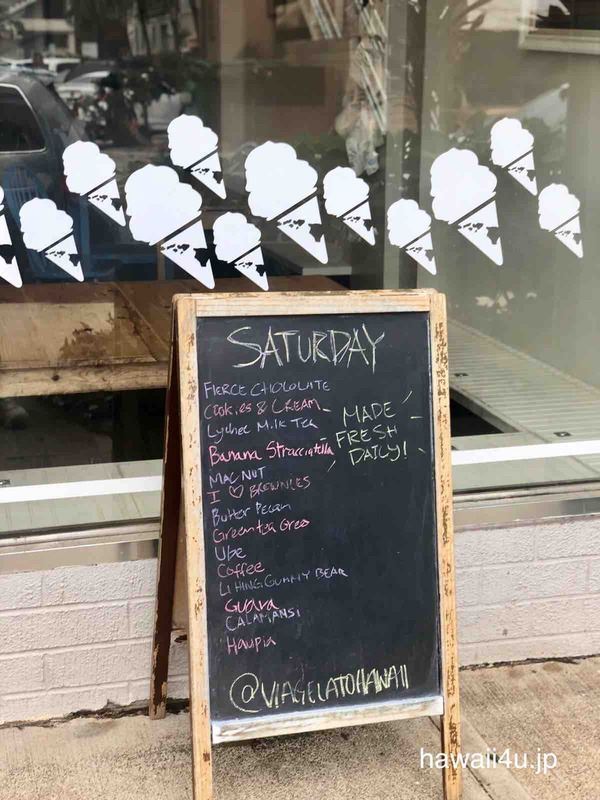 SATURDAY
FIERCE CHOCOLATE
Cookies & CREAM
Lychee Milk Tea
Banana Stracciatella
MAC NUT
I ♡ BROWNIES
Butter Pecan
Green tea Oreo
Ube
Coffee
LI HING GUMMY BEAR
Guava
CALAMANSI
Haupia
MADE
FRESH
DAILY!
@VIAGELATOHAWAII
hawaii4u.jp